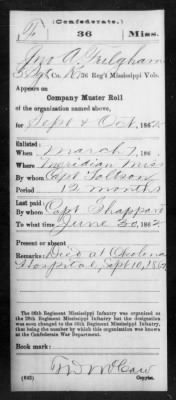 (Confederate.)
F 36 Miss.
Jno A. Fulgham
Co. K, 36 Reg't Mississippi Vols.
Appears on
Company Muster Roll
of the organization named above,
for Sept & Oct, 1862
Enlisted:
When March 7, 186
Where Meridian Miss
By whom Capt
Period 12 months
Last paid:
By whom Capt Shappard
To what time June 30, 1862
Present or absent
Remarks: Died at Okolona
Hospital, Sept 10, 1862
The 36th Regiment Mississippi Infantry was organized as
the 36th Regiment Mississippi Infantry but the designation
was soon changed to the 36th Regiment Mississippi Infantry,
that being the number by which this organization was known
at the Confederate War Department.
Book mark:
McCaw
(642) Copyist.